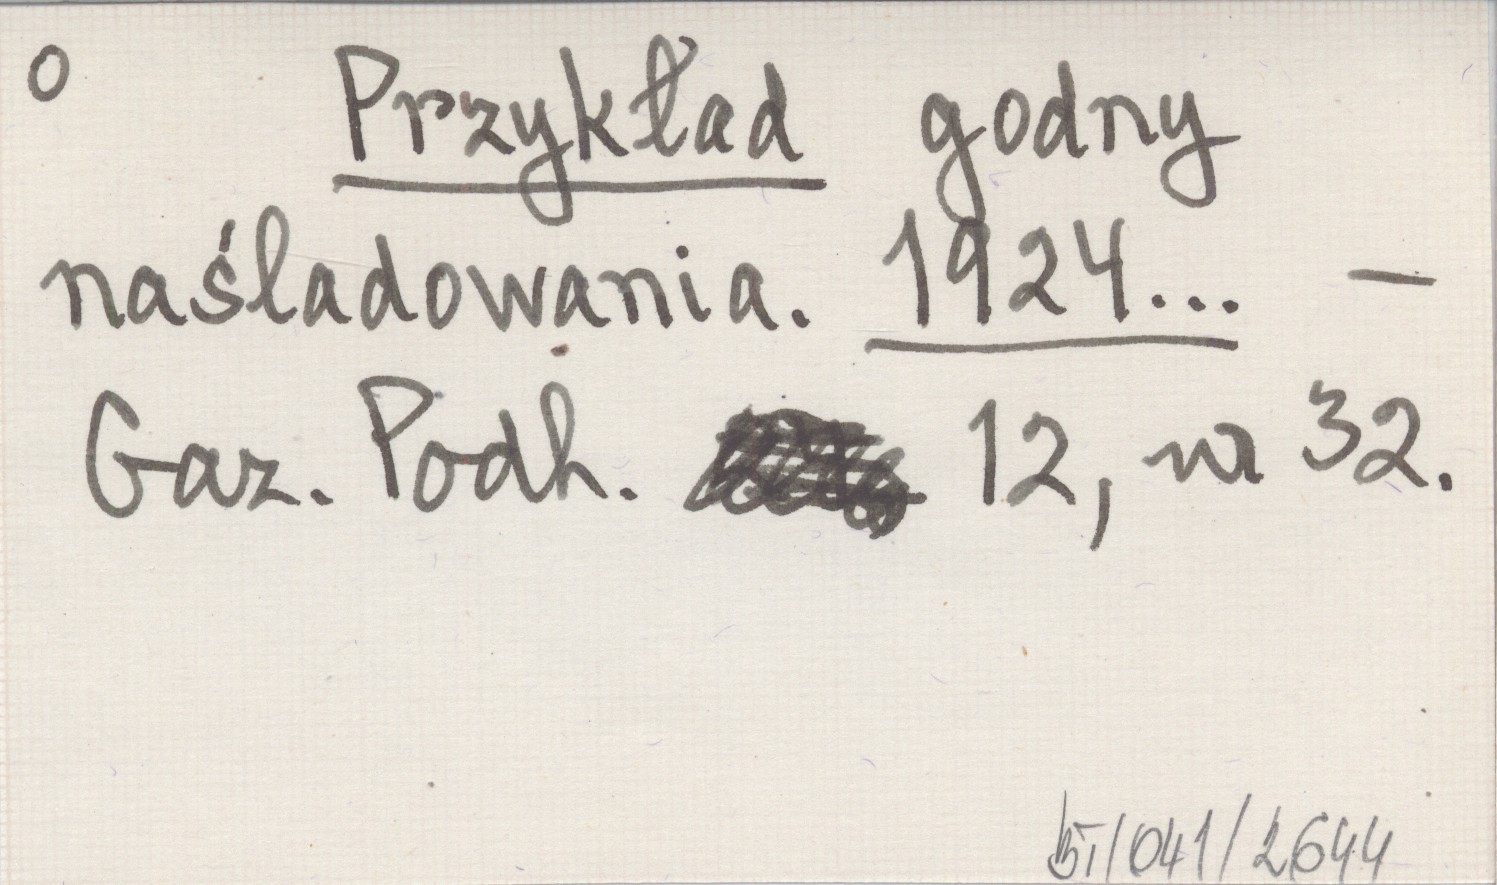 o Przykład godny
naśladowania. 1924... —
Gaz. Podh. 12, nr 32.
/041/2644